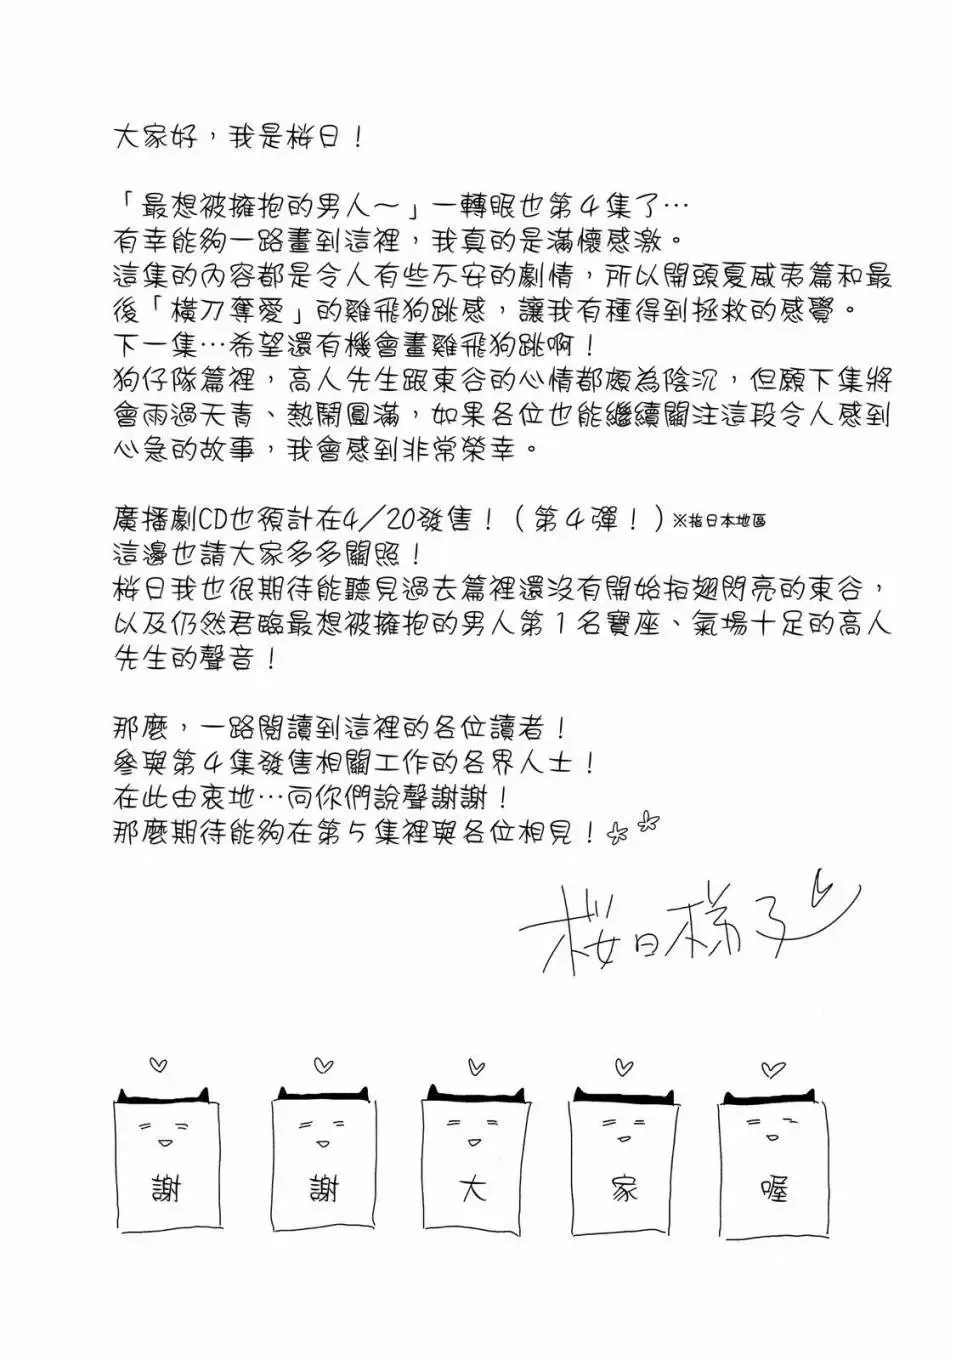 大家好，我是桜日！
「最想被擁抱的男人～」一轉眼也第４集了…
有幸能夠一路畫到這裡，我真的是滿懷感激。
這集的內容都是令人有些不安的劇情，所以開頭夏威夷篇和最
後「橫刀奪愛」的雞飛狗跳感，讓我有種得到拯救的感覺。
下一集…希望還有機會畫雞飛狗跳啊！
狗仔隊篇裡，高人先生跟東谷的心情都頗為陰沉，但願下集將
會雨過天青、熱鬧圓滿，如果各位也能繼續關注這段令人感到
心急的故事，我會感到非常榮幸。
廣播劇CD也預計在4／20發售！（第４彈！）※指日本地區
這邊也請大家多多關照！
桜日我也很期待能聽見過去篇裡還沒有開始拍翅閃亮的東谷，
以及仍然君臨最想被擁抱的男人第１名寶座、氣場十足的高人
先生的聲音！
那麼，一路閱讀到這裡的各位讀者！
參與第４集發售相關工作的各界人士！
在此由衷地…向你們說聲謝謝！
那麼期待能夠在第５集裡與各位相見！
桜日梯子
謝 謝 大 家 喔